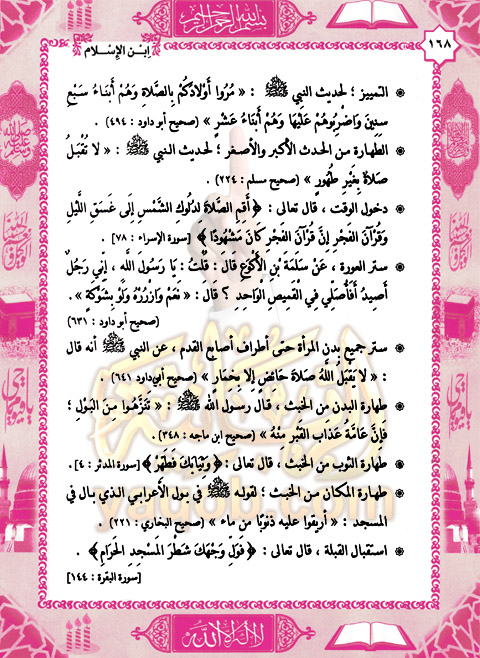 بسم الله الرحمن الرحيم
اِبْن الإِسْلام
١٦٨
التمييز ؛ لحديث النبي ﷺ : « مُرُوا أَوْلَادَكُمْ بِالصَّلَاةِ وَهُمْ أَبْنَاءُ سَبْعِ
سِنِينَ وَاضْرِبُوهُمْ عَلَيْهَا وَهُمْ أَبْنَاءُ عَشْرٍ » (صحيح أبو داود : ٤٩٤) .
الطهارة من الحدث الأكبر والأصغر ؛ لحديث النبي ﷺ : « لا تُقْبَلُ
صَلَاةٌ بِغَيْرِ طُهُورٍ » (صحيح مسلم : ٢٢٤) .
دخول الوقت ، قال تعالى : ﴿ أَقِمِ الصَّلَاةَ لِدُلُوكِ الشَّمْسِ إِلَى غَسَقِ اللَّيْلِ
وَقُرْآنَ الْفَجْرِ إِنَّ قُرْآنَ الْفَجْرِ كَانَ مَشْهُودًا ﴾ [سورة الإسراء : ٧٨] .
ستر العورة ، عَنْ سَلَمَةَ بْنِ الأَكْوَعِ قَالَ : قُلْتُ : يَا رَسُولَ اللَّهِ ، إِنِّي رَجُلٌ
أَصِيدُ أَفَأُصَلِّي فِي الْقَمِيصِ الْوَاحِدِ ؟ قال : « نَعَمْ وَازْرُرْهُ وَلَوْ بِشَوْكَةٍ » .
(صحيح أبو داود : ٦٣١)
ستر جميع بدن المرأة حتى أطراف أصابع القدم ، عن النبي ﷺ أنه قال
: « لا يَقْبَلُ اللَّهُ صَلَاةَ حَائِضٍ إلا بِخِمَارٍ » (صحيح أبي داود : ٦٤١)
طهارة البدن من الخبث ، قال رسول الله ﷺ : « تَنَزَّهُوا مِنَ الْبَوْلِ ؛
فَإِنَّ عَامَّةَ عَذَابِ الْقَبْرِ مِنْهُ » (صحيح ابن ماجه : ٣٤٨) .
طهارة الثوب من الخبث ، قال تعالى : ﴿ وَثِيَابَكَ فَطَهِّرْ ﴾ [سورة المدثر : ٤] .
طهارة المكان من الخبث ؛ لقوله ﷺ في بول الأعرابي الذي بال في
المسجد : « أريقوا عليه ذنوبًا من ماء » (صحيح البخاري : ٢٢١) .
استقبال القبلة ، قال تعالى : ﴿ فَوَلِّ وَجْهَكَ شَطْرَ الْمَسْجِدِ الْحَرَامِ ﴾ .
[سورة البقرة : ١٤٤]
yaqob.com
لا إله إلا الله